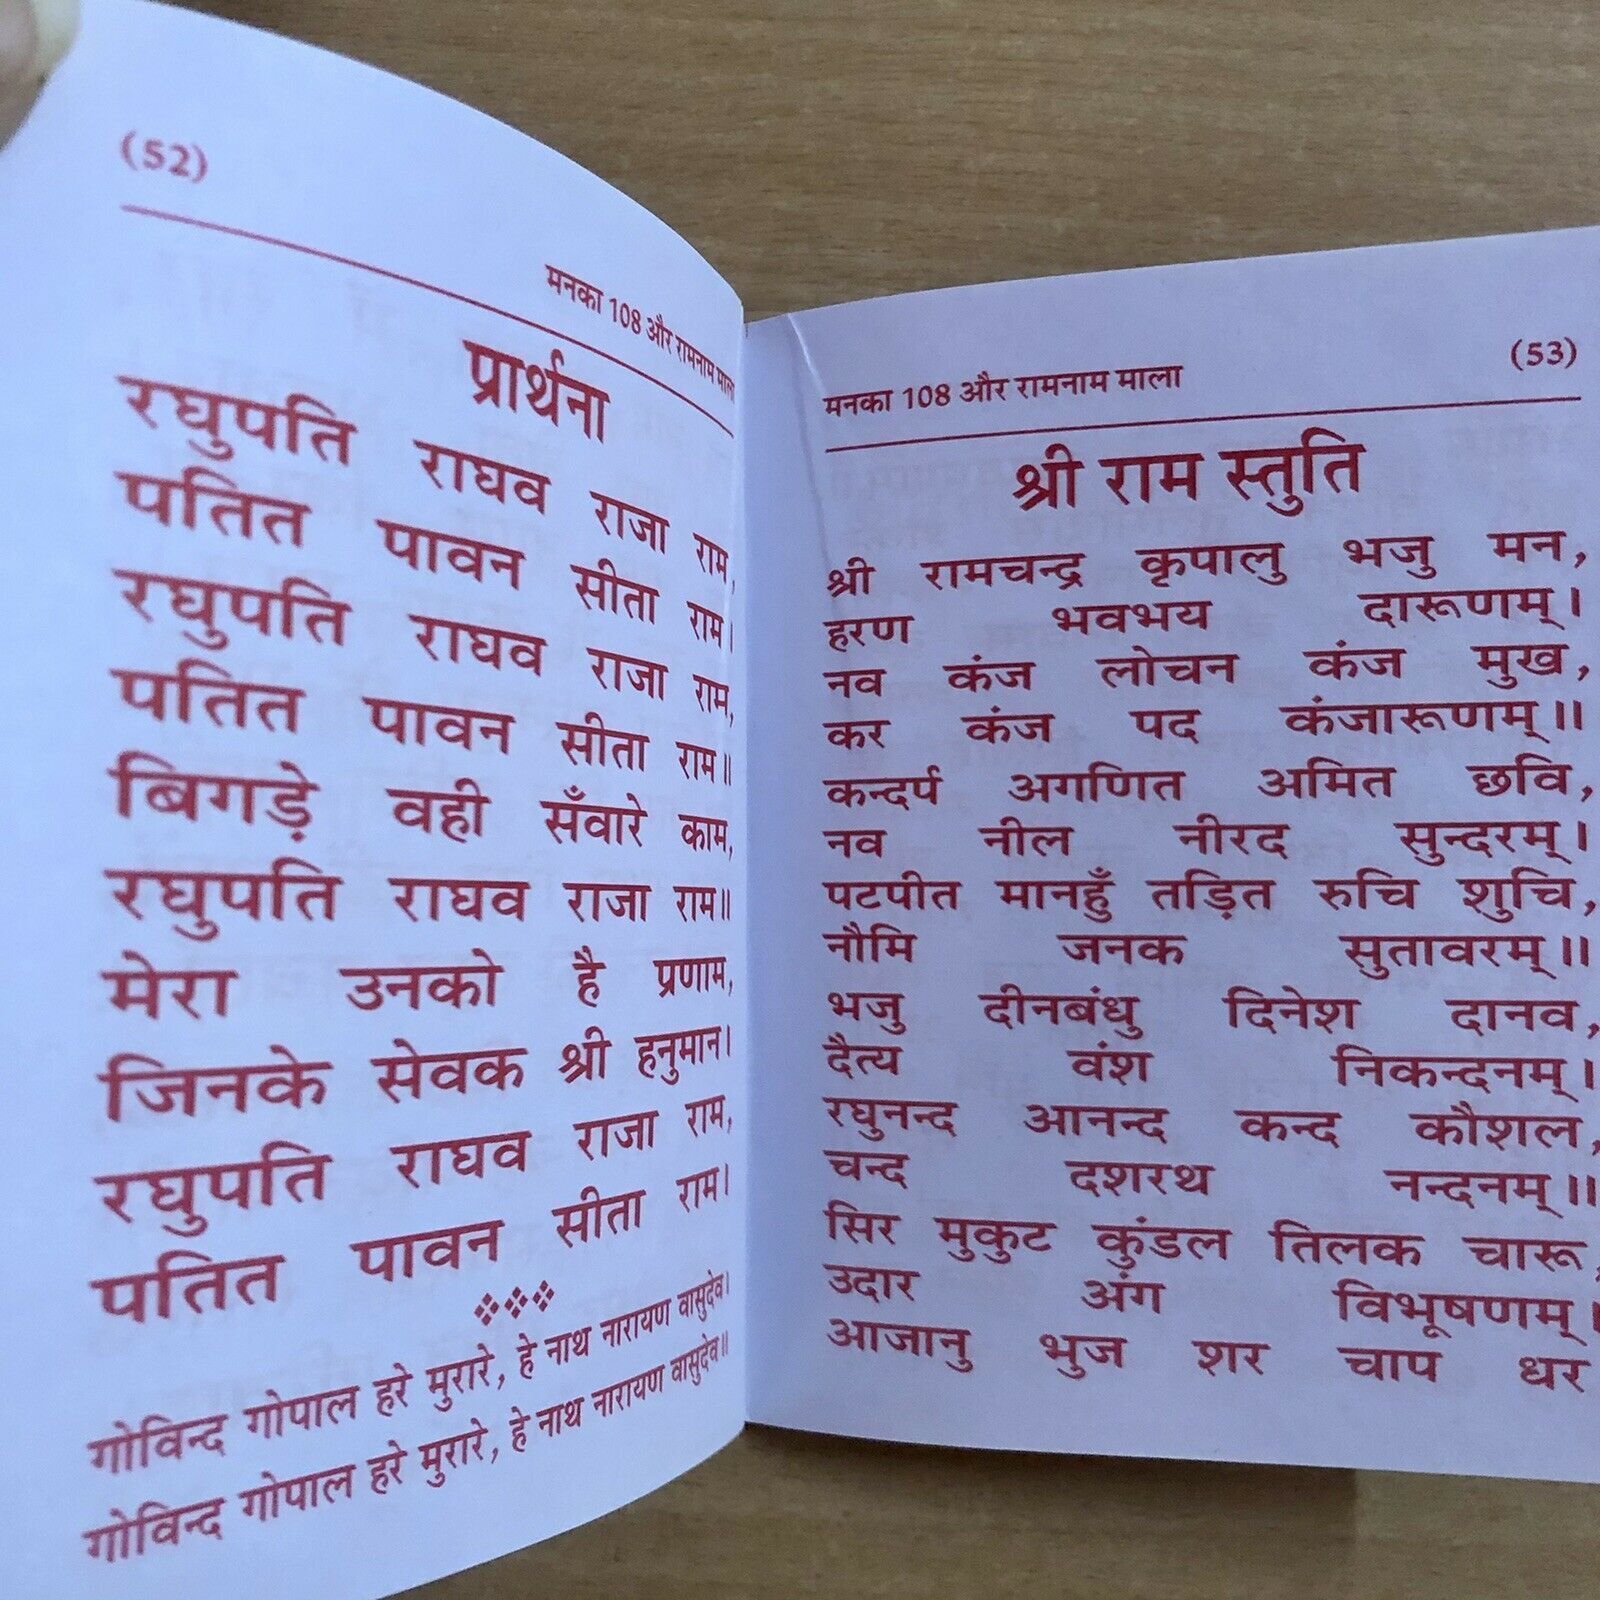 (52)
मनका 108 और रामनाम माला
प्रार्थना
रघुपति राघव राजा राम,
पतित पावन सीता राम।
रघुपति राघव राजा राम,
पतित पावन सीता राम॥
बिगड़े वही सँवारे काम,
रघुपति राघव राजा राम॥
मेरा उनको है प्रणाम,
जिनके सेवक श्री हनुमान।
रघुपति राघव राजा राम,
पतित पावन सीता राम।
गोविन्द गोपाल हरे मुरारे, हे नाथ नारायण वासुदेव।
गोविन्द गोपाल हरे मुरारे, हे नाथ नारायण वासुदेव॥
(53)
मनका 108 और रामनाम माला
श्री राम स्तुति
श्री रामचन्द्र कृपालु भजु मन,
हरण भवभय दारूणम्।
नव कंज लोचन कंज मुख,
कर कंज पद कंजारूणम्॥
कन्दर्प अगणित अमित छवि,
नव नील नीरद सुन्दरम्।
पटपीत मानहुँ तड़ित रुचि शुचि,
नौमि जनक सुतावरम्॥
भजु दीनबंधु दिनेश दानव,
दैत्य वंश निकन्दनम्।
रघुनन्द आनन्द कन्द कौशल,
चन्द दशरथ नन्दनम्॥
सिर मुकुट कुंडल तिलक चारू,
उदार अंग विभूषणम्।
आजानु भुज शर चाप धर